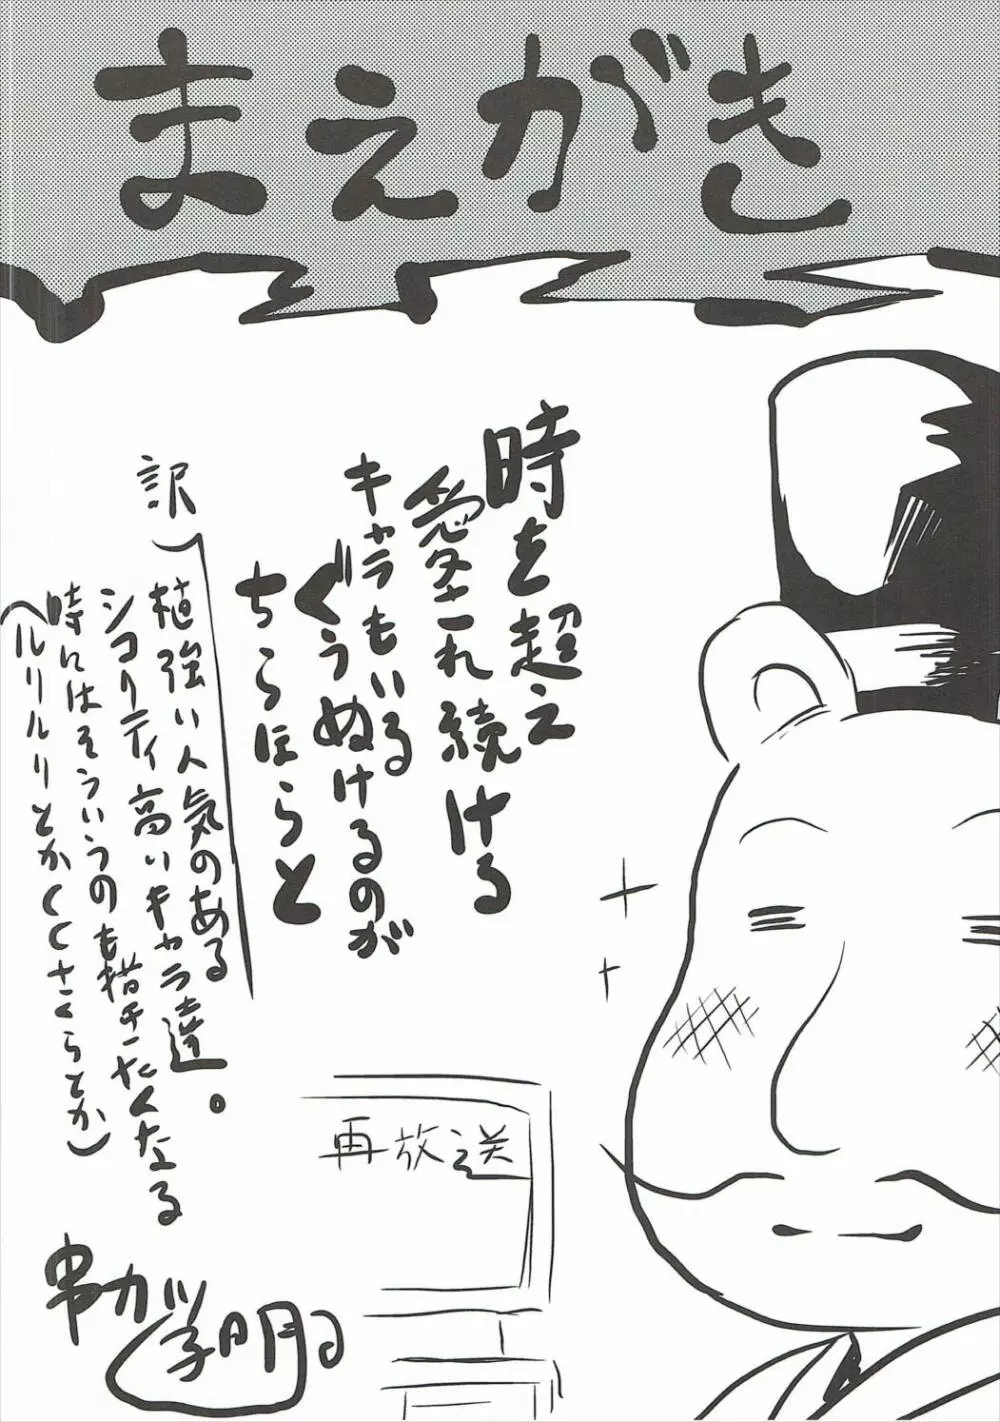 まえがき
時を超え
愛され続ける
キャラもいる
ぐうぬけるのが
ちらほらと
訳)
根強い人気のある
シコリティ高いキャラ達。
時にはそういうのも描きたくなる
(ルリルリとかCCさくらとか)
再放送
串カツ学明